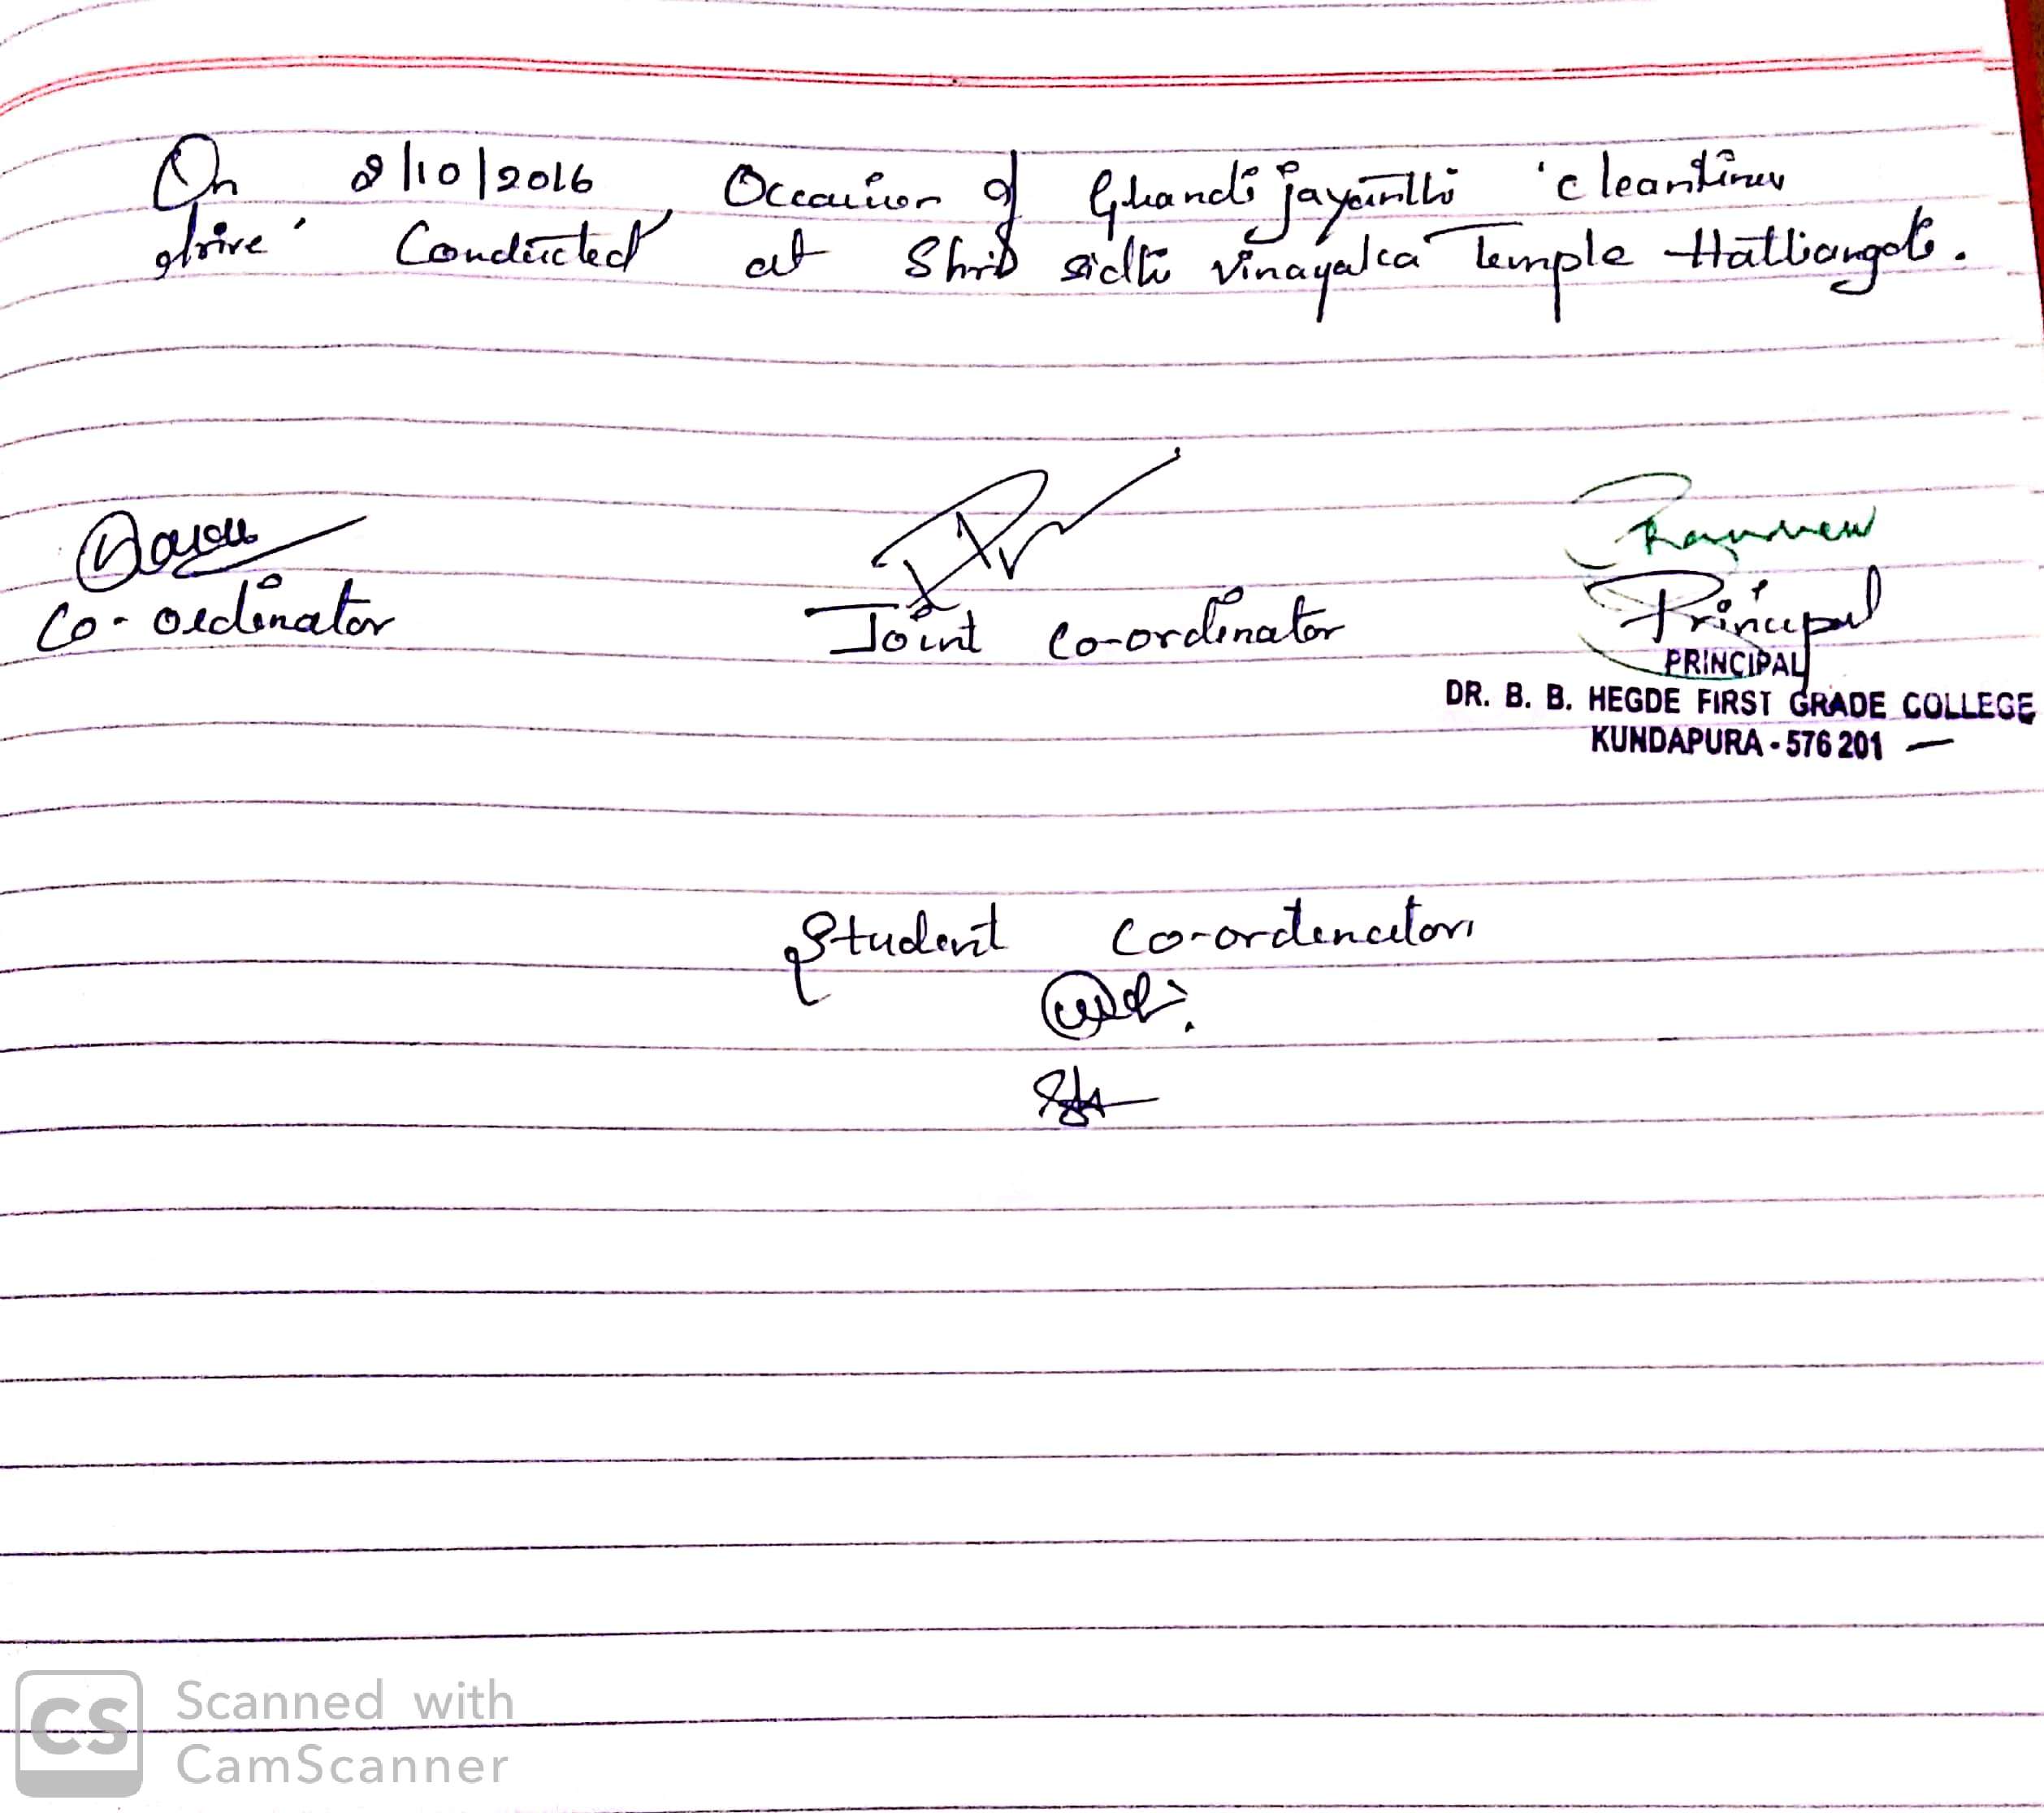 On 2/10/2016, Occasion of Ghandi jayanthi 'cleanliness
drive' Conducted at Shri sidhi vinayaka Temple Hattiangadi.
Co-ordinator Joint Co-ordinator Principal
PRINCIPAL
DR. B. B. HEGDE FIRST GRADE COLLEGE
KUNDAPURA - 576 201
Student Co-ordinators
CS Scanned with
CamScanner